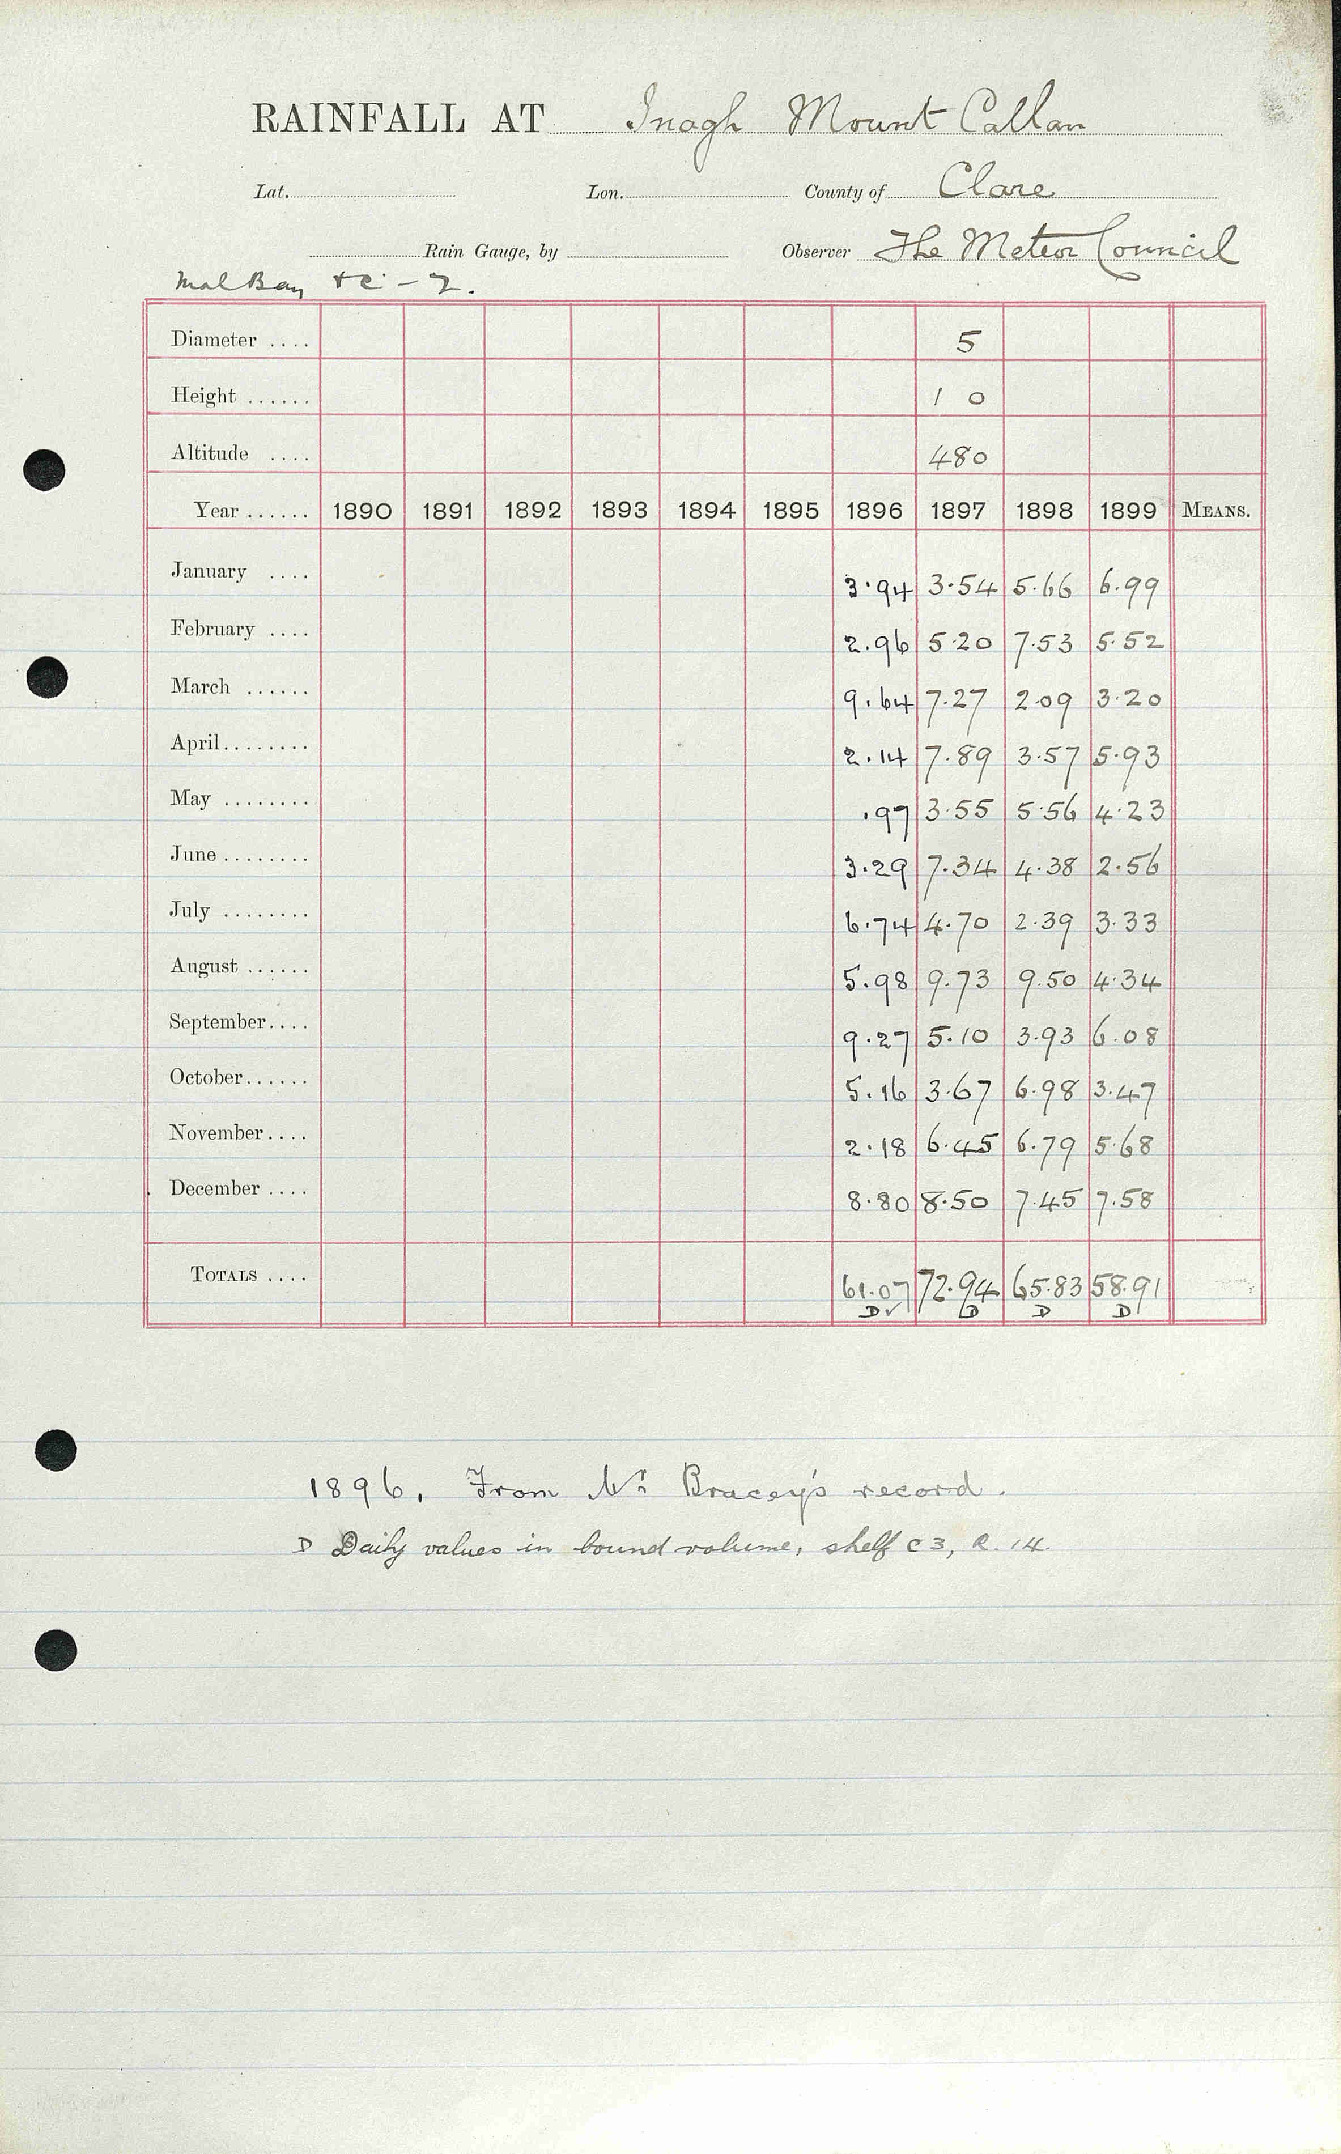 RAINFALL AT Inagh Mount Callan
Lat. Lon. County of Clare
Rain Gauge, by Observer The Meteor Council
Mal Bay
Diameter .... 5
Height ...... 1 0
Altitude .... 480
Year ...... 1890 1891 1892 1893 1894 1895 1896 1897 1898 1899 MEANS.
January .... 3.94 3.54 5.66 6.99
February .... 2.96 5.20 7.53 5.52
March ...... 9.64 7.27 2.09 3.20
April........ 2.14 7.89 3.57 5.93
May ........ .97 3.55 5.56 4.23
June ........ 3.29 7.34 4.38 2.56
July ........ 6.74 4.70 2.39 3.33
August ...... 5.98 9.73 9.50 4.34
September.... 9.27 5.10 3.93 6.08
October...... 5.16 3.67 6.98 3.47
November.... 2.18 6.45 6.79 5.68
December .... 8.80 8.50 7.45 7.58
TOTALS .... 61.07 72.94 65.83 58.91
D✓ D D D
1896. From Mr Bracey's record.
D Daily values in bound volume, shelf C3, R. 14